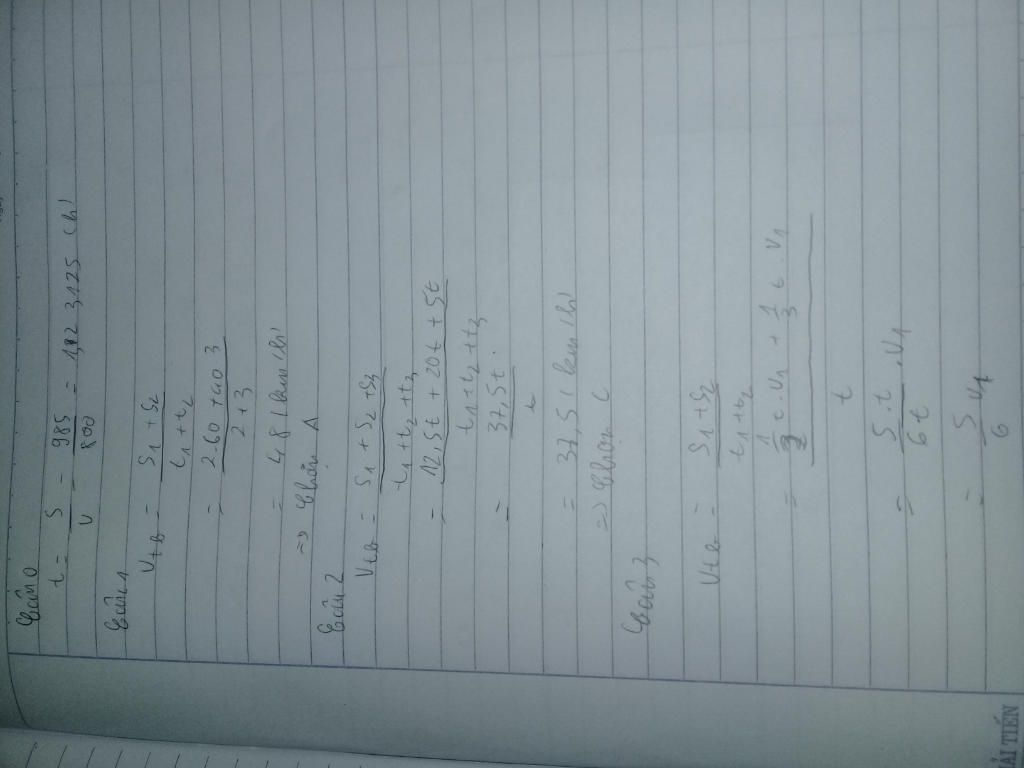 Câu 0
t = S/v = 985/800 = 1,23125 (h)
Câu 1
Vtb = (S1 + S2)/(t1 + t2)
= (2.60 + 40.3)/(2+3)
= 48 (km/h)
=> Chọn A
Câu 2
Vtb = (S1 + S2 + S3)/(t1 + t2 + t3)
= (12,5t + 20t + 5t)/(t1 + t2 + t3)
= 37,5t/t
= 37,5 (km/h)
=> Chọn C
Câu 3
Vtb = (S1 + S2)/(t1 + t2)
= (1/2 t.V1 + 1/3 t.V1)/t
= 5.t/6t .V1
= 5/6 V1
ẢI TIẾN